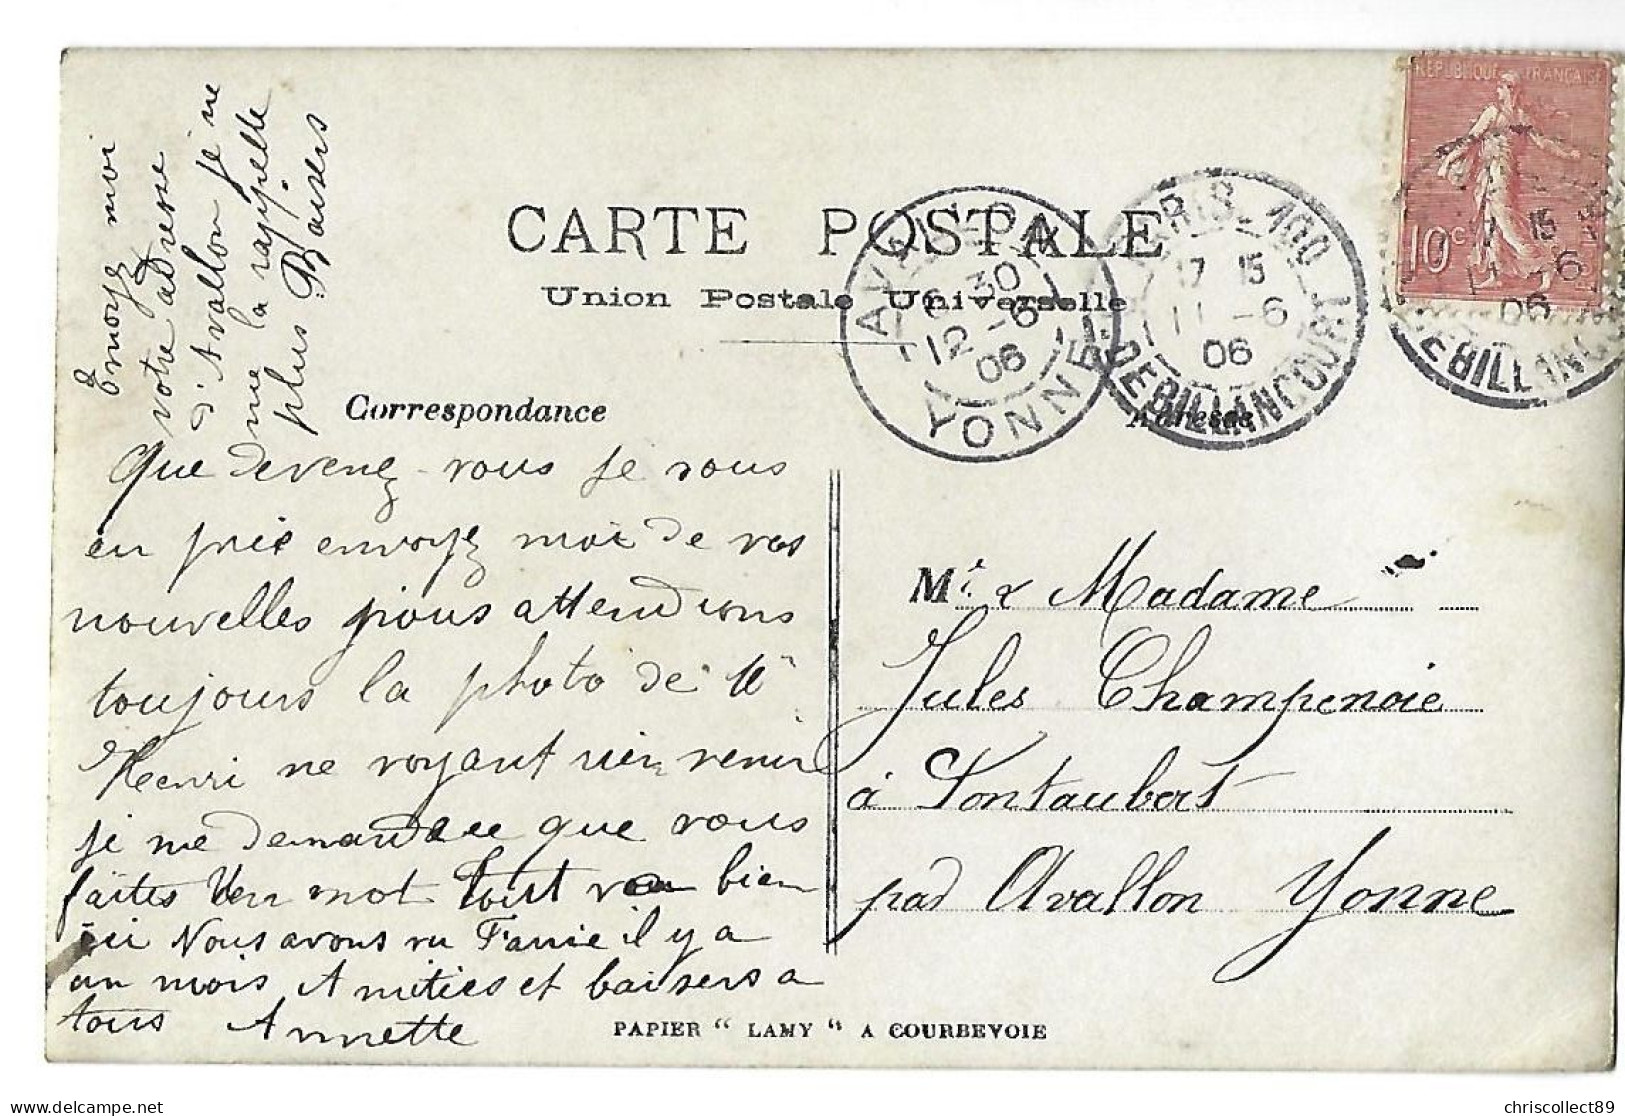 Envoyez moi
votre adresse
d'Avallon je ne
me la rappelle
plus Baisers
CARTE POSTALE
Union Postale Universelle
AVALLON
6 30
12 -6
06
YONNE
PARIS-100
17 15
11 -6
06
R. DE BILLANCOURT
REPUBLIQUE FRANÇAISE
10c
17 15
06
DE BILLANCOURT
Correspondance
Adresse
Que devenez-vous je vous
en prie envoyez moi de vos
nouvelles nous attendions
toujours la photo de Mr
Henri ne voyant rien venir
je me demande que vous
faites Un mot Tout va bien
ici Nous avons vu Fanie il y a
un mois Amitiés et baisers a
tous Annette
Mr & Madame
Jules Champenoie
à Pontaubert
par Avallon Yonne
PAPIER “ LAMY “ A COURBEVOIE
delcampe.net
chriscollect89